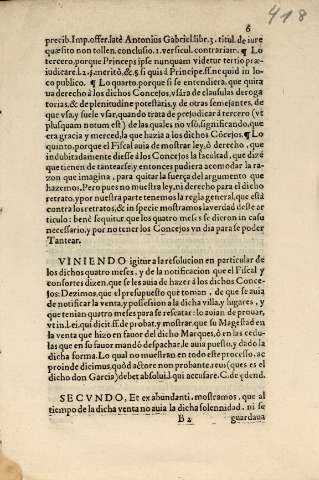 418
6
precib. Imp. offer. latè Antonius Gabriel. libr. 3. titul. de iure
quæsito non tollen. conclusio. 1. versicul. contrariam. ¶ Lo
tercero, porque Princeps ipse nunquam videtur tertio præ-
iudicare. l. 2. §. merito, & §. si quis á Principe. ff. ne quid in lo-
co publico. ¶ Lo quarto, porque si se entendiera, que quita
ua derecho à los dichos Concejos, vsára de clausulas deroga
torias, & de plenitudine potestatis, y de otras semejantes, de
que vsa, y suele vsar, quando trata de prejudicar à tercero (vt
plusquam notum est) de las quales no vsò, significando, que
era gracia y merced, la que hazia a los dichos Cõcejos. ¶ Lo
quinto, porque el Fiscal auia de mostrar ley, ò derecho, que
indubitadamente diesse á los Concejos la facultad, que dizẽ
que tienen de tantearse, y entonces pudiera acomodar la ra-
zon que imagina, para quitar la fuerça del argumento que
hazemos. Pero pues no muestra ley, ni derecho para el dicho
retrato, y por nuestra parte tenemos la regla general, que está
contra los retratos, & in specie mostramos la verdad deste ar
ticulo: benè sequitur, que los quatro meses se dieron in casu
necessario, y por no tener los Concejos vn dia para se poder
Tantear.
VINIENDO igitur a la resolucion en particular de
los dichos quatro meses, y de la notificacion que el Fiscal y
consortes dizen, que se les auia de hazer á los dichos Conce-
jos: Dezimos, que el presupuesto que toman, de que se auia
de notificar la venta, y possession a la dicha villa, y lugares, y
que tenian quatro meses para se rescatar: lo auian de prouar,
vt in. l. ei, qui dicit. ff. de probat. y mostrar, que su Magestad en
la venta que hizo en fauor del dicho Marques, ò en las cedu-
las que en su fauor mandó despachar, le auia puesto, y dado la
dicha forma. Lo qual no muestran en todo este processo, ac
proinde dicimus, quòd actore non probante, reus (ques es el
dicho don Garcia) debet absolui. l. qui accusare. C. de edend.
SECVNDO, Et ex abundanti, mostramos, que al
tiempo de la dicha venta no auia la dicha solennidad, ni se
B 2
guardaua